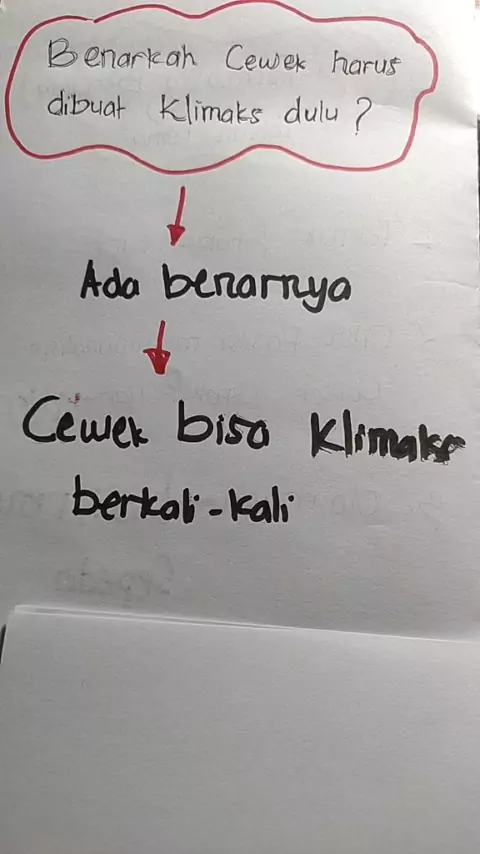 Benarkah Cewek harus
dibuat Klimaks dulu ?
Ada benarnya
Cewek bisa Klimaks
berkali-kali